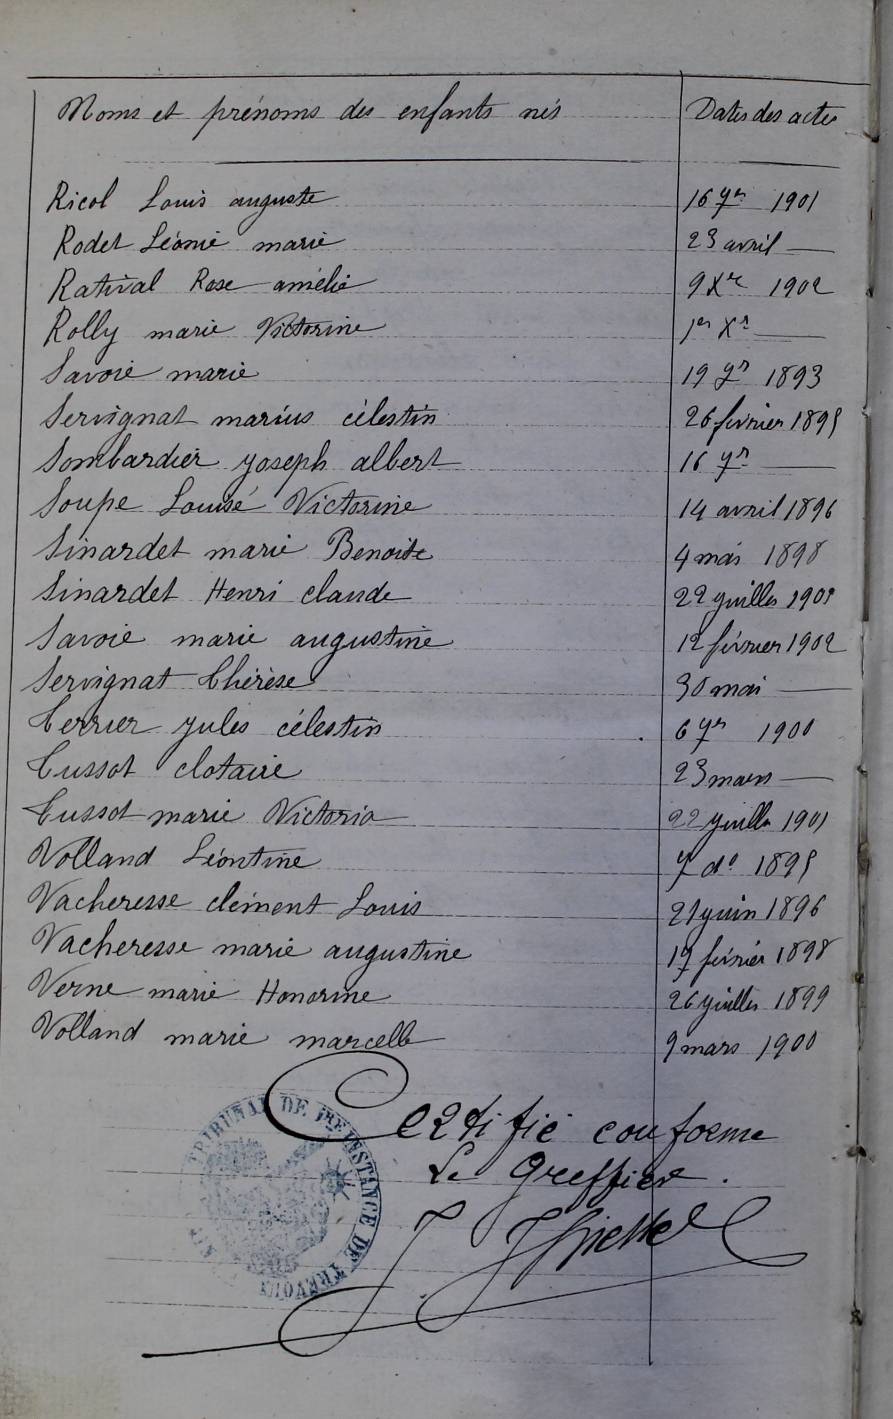 Noms et prénoms des enfants nés Dates des actes
Ricol Louis auguste 16 7re 1901
Rodet Léonie marie 23 avril —
Ratival Rose amélie 9 Xre 1902
Rolly marie Victorine 1er Xre —
Savoie marie 19 9re 1893
Servignat marius célestin 26 février 1895
Sombardier joseph albert 16 7re —
Soupe Louise Victorine 14 avril 1896
Sinardet marie Benoite 4 mai 1898
Sinardet Henri claude 22 juillet 1901
Savoie marie augustine 12 février 1902
Servignat Thérèse 30 mai —
Terrier jules célestin 6 7re 1900
Tussot clotaire 23 mars —
Tussot marie Victoria 22 juillet 1901
Volland Léontine 7 do 1895
Vacheresse clément Louis 21 juin 1896
Vacheresse marie augustine 17 février 1898
Verne marie Honorine 26 juillet 1899
Volland marie marcelle 9 mars 1900
Certifié conforme
Le Greffier.
TRIBUNAL DE 1RE INSTANCE DE TRÉVOUX